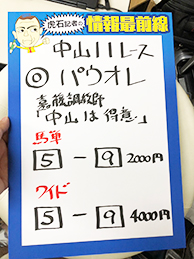 虎石記者の
情報最前線
中山11レース
◎パウオレ
嘉藤調教師
「中山は得意」
馬単
5-9 2000円
ワイド
5-9 4000円